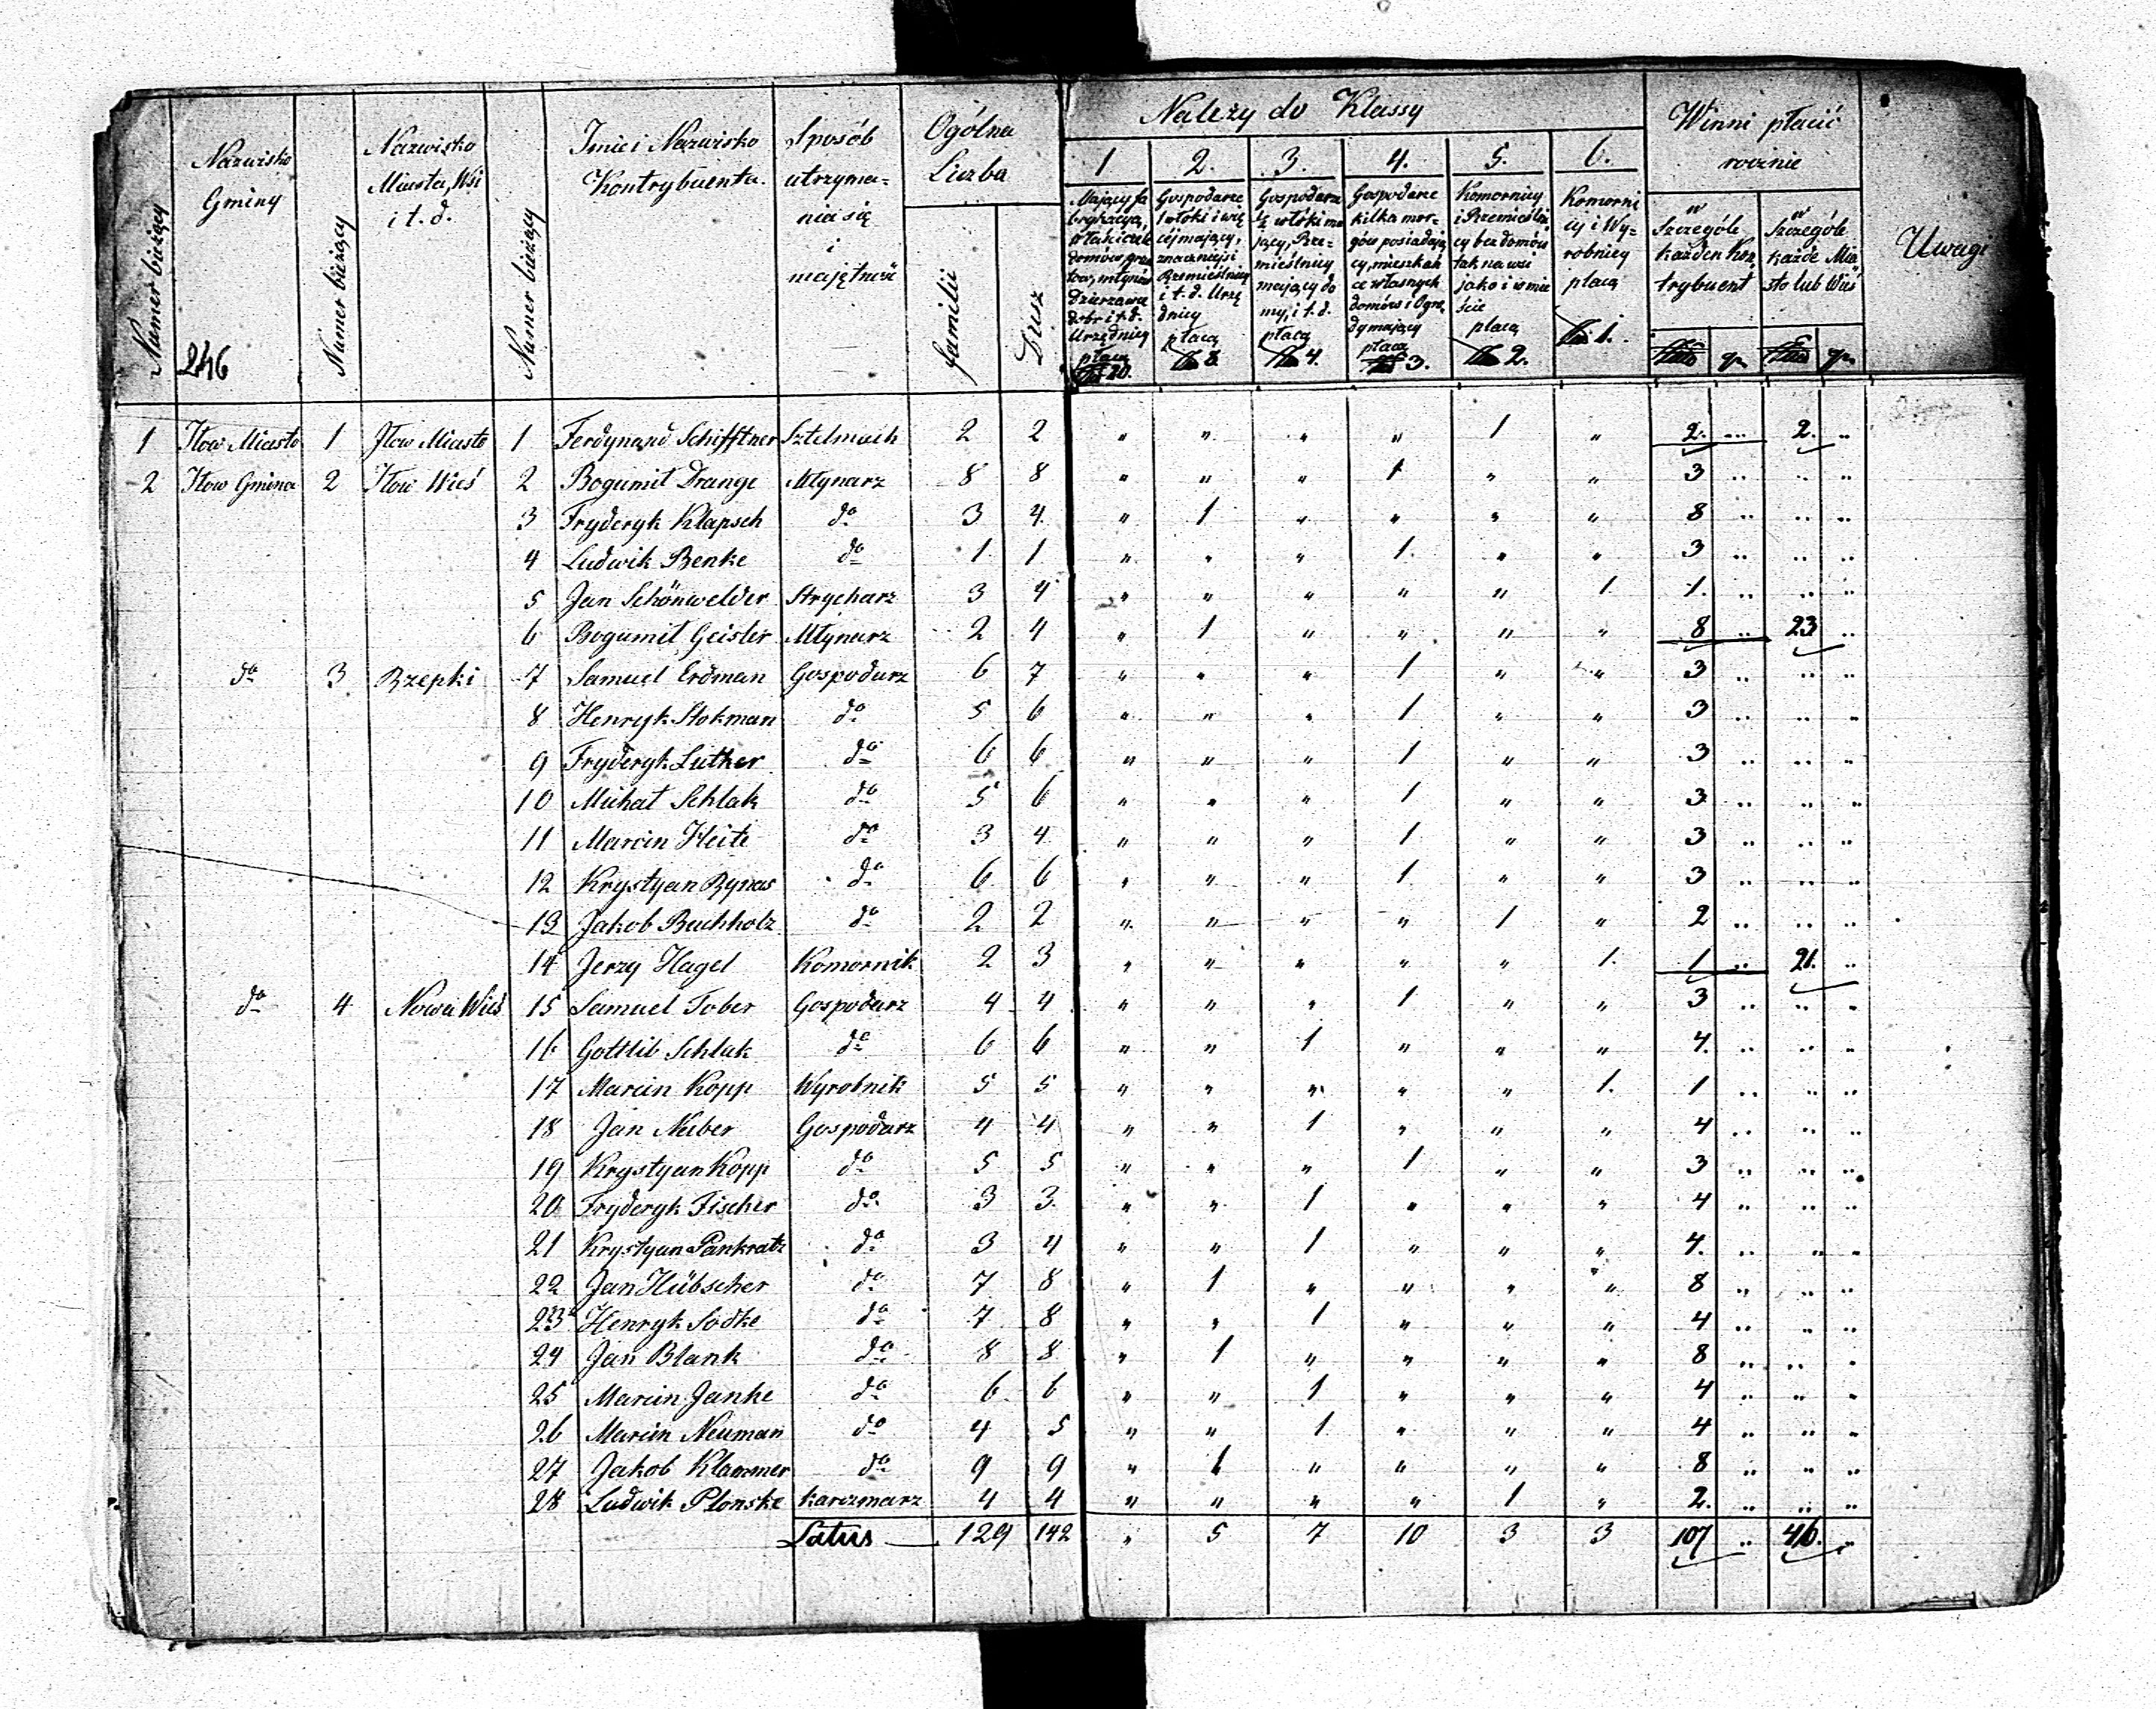 Numer bieżący
Nazwisko
Gminy
246
Numer bieżący
Nazwisko
Miasta, Wsi
i t. d.
Numer bieżący
Imie i Nazwisko
Kontrybuenta.
Sposób
utrzyma=
nia się
i
majętność
Ogólna
Liczba
familii
Dusz
Należy do Klassy
1
Mający fa
brykacya,
właściciele
domów, grun
tów, młynów
dzierzawcy
dobr i t. d.
Urzędnicy
płacą
20.
2.
Gospodarze
1 włóki i wię
céj mający,
znaczniejsi
Rzemieślnicy
i t. d. Urzę
dnicy
płacą
8
3.
Gospodarze
½ włóki ma
jący, Rze=
mieślnicy
mający do
my, i t. d.
płacą
4.
4.
Gospodarze
kilka mor=
gów posiadają
cy, mieszkań
ce własnych
domów i Ogro
dy mający
płacą
3.
5.
Komornicy
i Rzemieślni
cy bez domów
tak na wsi
jako i w mie
ście
płacą
2.
6.
Komorni
cy i Wy=
robnicy
płacą
1.
Winni płacić
rocznie
w
Szczególe
każden Kon
trybuent
gr
w
Szczególe
każde Mia
sto lub Wieś
gr
Uwagi
1 Iłow Miasto 1 Iłow Miasto 1 Ferdynand Schifftner Sztelmach 2 2 " " " " 1 " 2. .. 2. ..
2 Iłow Gmina 2 Iłow Wieś 2 Bogumił Drange Młynarz 8 8 " " " 1 " " 3 .. .. ..
3 Fryderyk Klapsch do 3 4 " 1 " " " " 8 .. .. ..
4 Ludwik Benke do 1 1 " " " 1. " " 3 .. .. ..
5 Jan Schönwelder Strycharz 3 4 " " " " " 1. 1. .. .. ..
6 Bogumił Geisler Młynarz 2 4 " 1 " " " " 8 .. 23 ..
do 3 Rzepki 7 Samuel Erdman Gospodarz 6 7 " " " 1 " " 3 .. .. ..
8 Henryk Stokman do 5 6 " " " 1 " " 3 .. .. ..
9 Fryderyk Luther do 6 6 " " " 1 " " 3 .. .. ..
10 Michał Schlak do 5 6 " " " 1 " " 3 .. .. ..
11 Marcin Heite do 3 4 " " " 1 " " 3 .. .. ..
12 Krystyan Rynas do 6 6 " " " 1. " " 3 .. .. ..
13 Jakob Buchholz do 2 2 " " " " 1 " 2 .. .. ..
14 Jerzy Hagel Komornik 2 3 " " " " " 1. 1 .. 21. ..
do 4 Nowa Wieś 15 Samuel Tober Gospodarz 4 4 " " " 1 " " 3 .. .. ..
16 Gottlib Schlak do 6 6 " " 1 " " " 4. .. .. ..
17 Marcin Kopp Wyrobnik 5 5 " " " " " 1. 1 .. .. ..
18 Jan Neiber Gospodarz 4 4 " " 1 " " " 4 .. .. ..
19 Krystyan Kopp do 5 5 " " " 1 " " 3 .. .. ..
20 Fryderyk Fischer do 3 3. " " 1 " " " 4 .. .. ..
21 Krystyan Pankratz do 3 4 " " 1 " " " 4. .. .. ..
22 Jan Hübscher do 7 8 " 1 " " " " 8 .. .. ..
23 Henryk Sodke do 7 8 " " 1 " " " 4 .. .. ..
24 Jan Blank do 8 8 " 1 " " " " 8 .. .. ..
25 Marcin Janke do 6 6 " " 1 " " " 4 .. .. ..
26 Marcin Neuman do 4 5 " " 1 " " " 4 .. .. ..
27 Jakob Klammer do 9 9 " 1 " " " " 8 .. .. ..
28 Ludwik Plonske Karczmarz 4 4 " " " " 1 " 2. .. .. ..
Latus 129 142 " 5 7 10 3 3 107 .. 46. ..